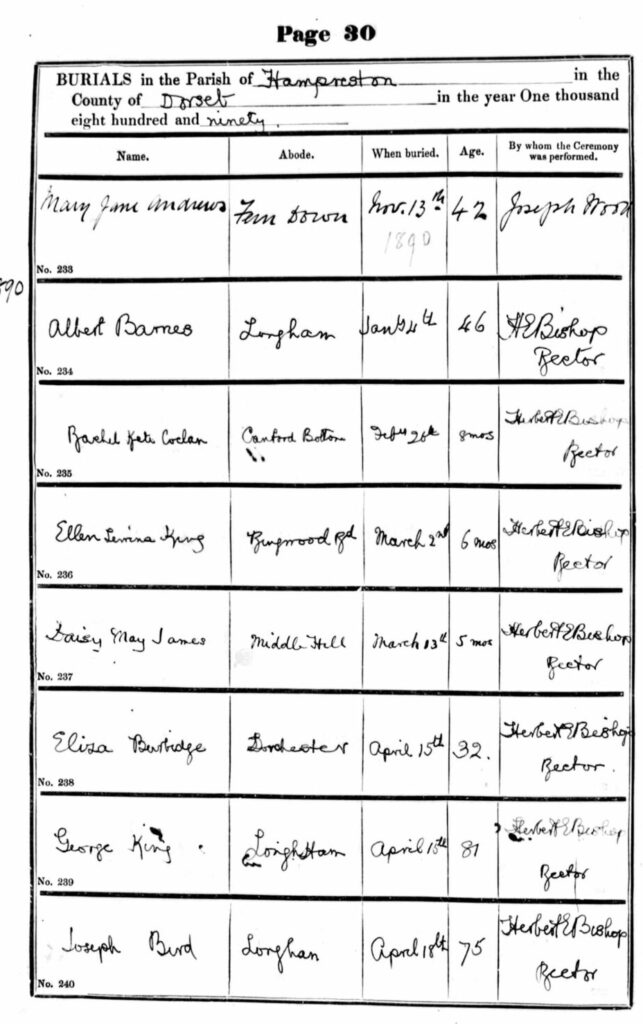 Page 30
BURIALS in the Parish of Hampreston in the
County of Dorset in the year One thousand
eight hundred and ninety.
Name. Abode. When buried. Age. By whom the Ceremony was performed.
Mary Jane Andrews Fern Down Nov. 13th 1890 42 Joseph Wood
No. 233
890
Albert Barnes Longham Jany 4th 46 HEBishop
Rector
No. 234
Rachel Kate Canford Bottom Feby 8mos Herbert E Bishop
Rector
No. 235
Ellen King Ringwood Rd March 2nd 6 mos Herbert E Bishop
Rector
No. 236
Daisy May James Middle Hill March 13th 5 mos Herbert E Bishop
Rector
No. 237
Eliza Burbidge Dorchester April 15th 32. Herbert E Bishop
Rector.
No. 238
George King Longham April 81 Herbert E Bishop
Rector
No. 239
Joseph Bird Longham April 18th 75 Herbert E Bishop
Rector
No. 240